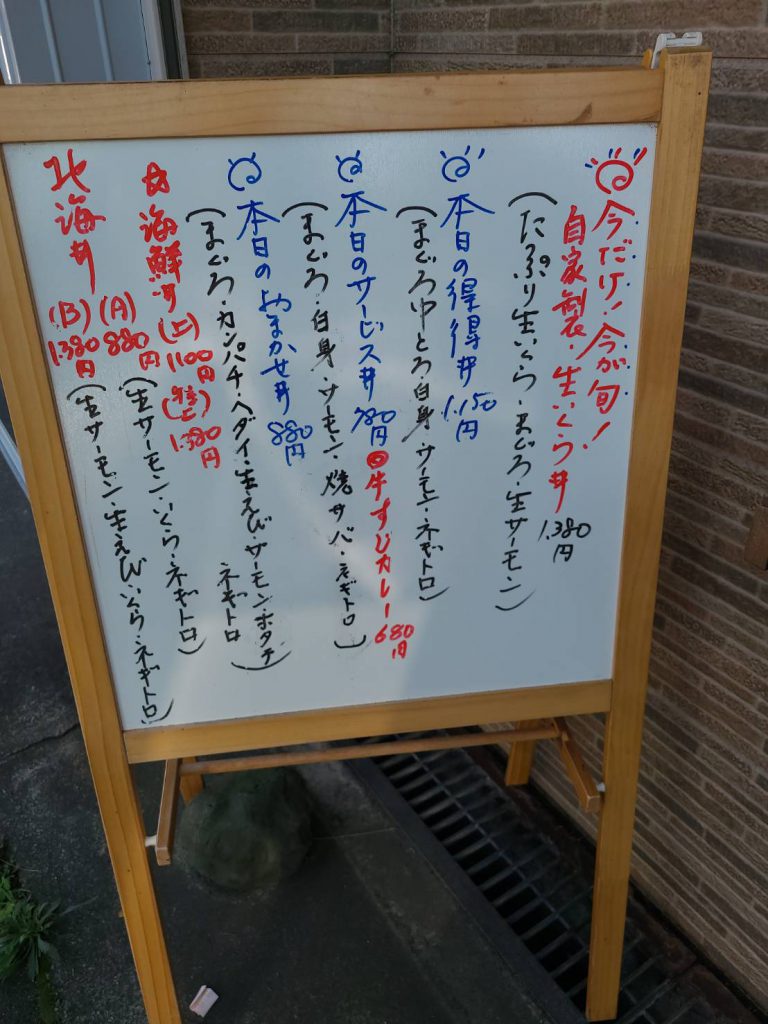 今だけ!今が旬!
自家製・生いくら丼 1.380円
(たっぷり生いくら・まぐろ・生サーモン)
本日の得得丼 1.150円
(まぐろ中とろ・白身・サーモン・ネギトロ)
本日のサービス丼 780円
◎牛すじカレー 680円
(まぐろ・白身・サーモン・焼サバ・ネギトロ)
本日のおまかせ丼 880円
(まぐろ・カンパチ・ヘダイ・生えび・サーモン・ホタテ)
ネギトロ
海鮮丼 (上) 1100円
(特上) 1.380円
北海丼 (A) 880円
(生サーモン・いくら・ネギトロ)
(B) 1.380円
(生サーモン・生えび・いくら・ネギトロ)